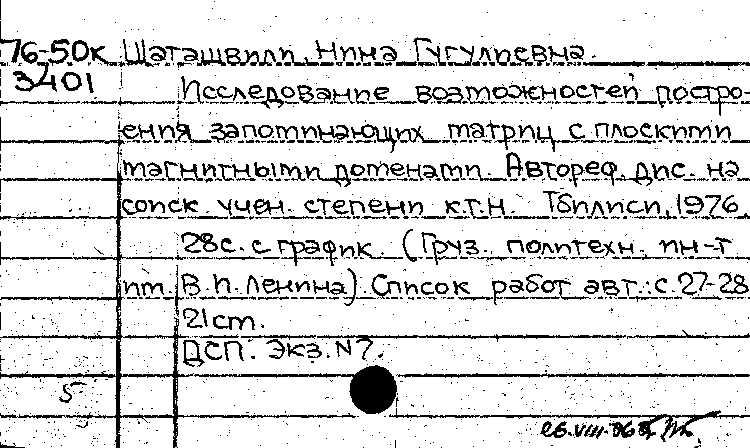 76-50к Шаташвили, Нина Гугулиевна.
3401
Исследование возможностей постро-
ения запоминающих матриц с плоскими
магнитными доменами. Автореф. дис. на
соиск учен. степени к.т.н. Тбилиси, 1976.
28с. с график. (Груз. политехн. ин-т
им. В.И. Ленина). Список работ авт.: с.27-28
21см.
ДСП. Экз. N7.
5